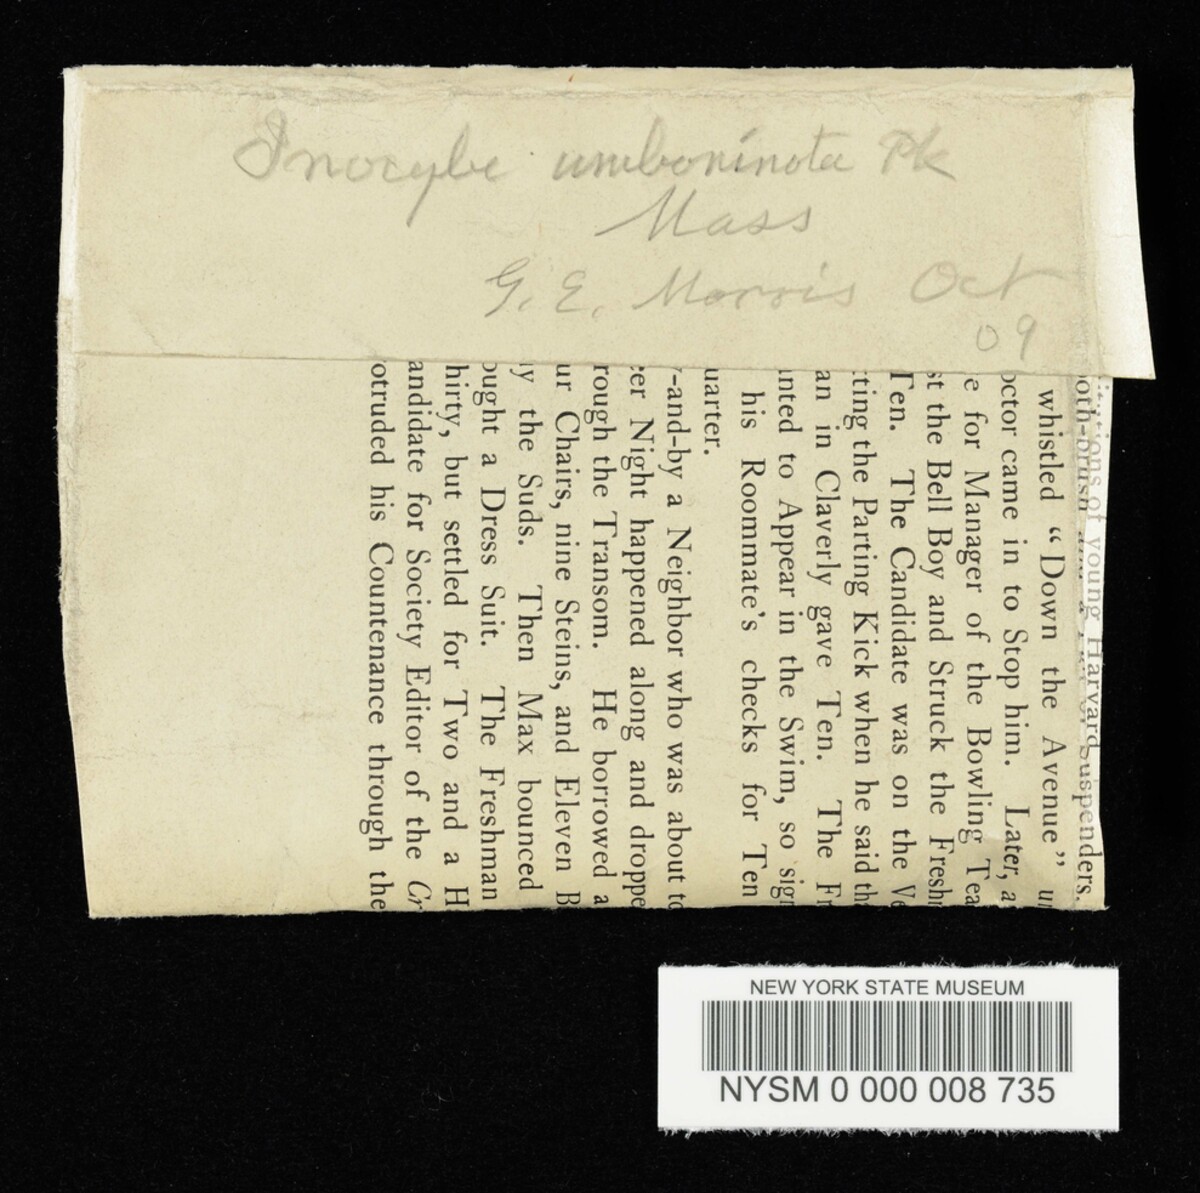 Inocybe umboninota Pk
Mass
G. E. Morris Oct
09
itutions of young Harvard
ooth-brush and a Suspenders.
whistled “Down the Avenue” u
octor came in to Stop him. Later, a
e for Manager of the Bowling Tea
st the Bell Boy and Struck the Fresh
Ten. The Candidate was on the Ve
rting the Parting Kick when he said th
an in Claverly gave Ten. The Fr
nted to Appear in the Swim, so sign
his Roommate's checks for Ten
uarter.
y-and-by a Neighbor who was about to
er Night happened along and droppe
rough the Transom. He borrowed a
ur Chairs, nine Steins, and Eleven B
y the Suds. Then Max bounced
ought a Dress Suit. The Freshman
hirty, but settled for Two and a H
andidate for Society Editor of the Cr
otruded his Countenance through the
NEW YORK STATE MUSEUM
NYSM 0 000 008 735